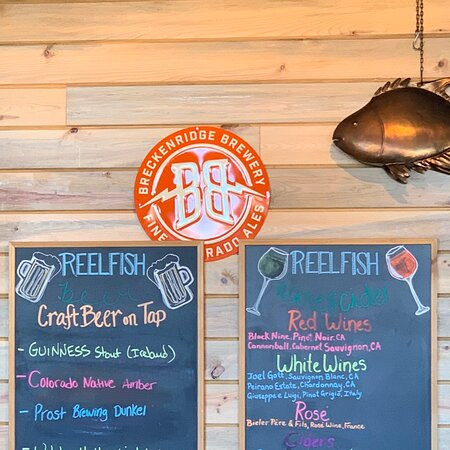 BRECKENRIDGE BREWERY
BB
FINE COLORADO ALES
REELFISH
Craft Beer on Tap
- GUINNESS Stout (Ireland)
- Colorado Native Amber
- Prost Brewing Dunkel
REELFISH
Wine & Cider
Red Wines
Black Nine, Pinot Noir, CA
Cannonball, Cabernet Sauvignon, CA
White Wines
Joel Gott, Sauvignon Blanc, CA
Peirano Estate, Chardonnay, CA
Giuseppe e Luigi, Pinot Grigio, Italy
Rosé
Bieler Père & Fils, Rosé Wine, France
Ciders